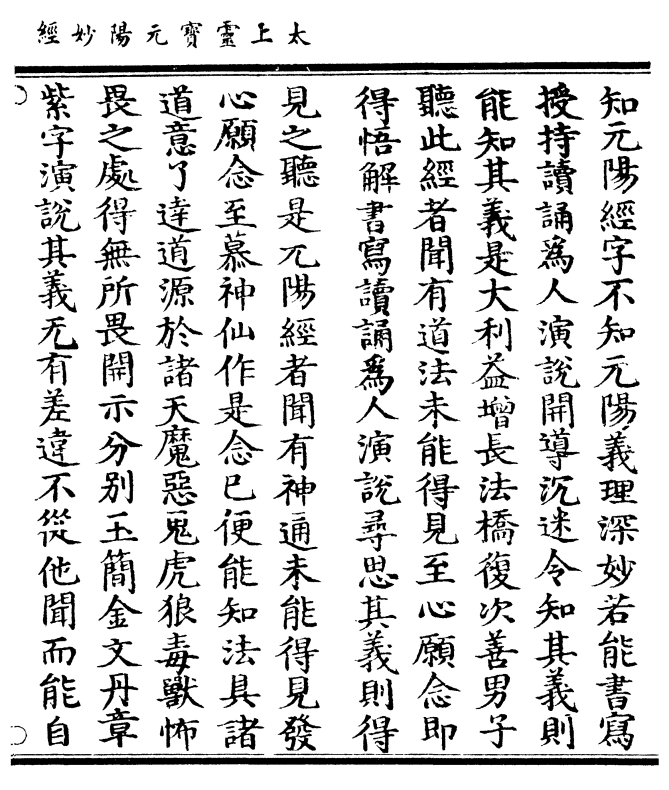 太上靈寶元陽妙經
知元陽經字不知元陽義理深妙若能書寫
授持讀誦為人演說開導沉迷令知其義則
能知其義是大利益增長法橋復次善男子
聽此經者聞有道法未能得見至心願念即
得悟解書寫讀誦為人演說尋思其義則得
見之聽是元陽經者聞有神通未能得見發
心願念至慕神仙作是念已便能知法具諸
道意了達道源於諸天魔惡鬼虎狼毒獸怖
畏之處得無所畏開示分别玉簡金文丹章
紫字演說其義无有差違不從他聞而能自